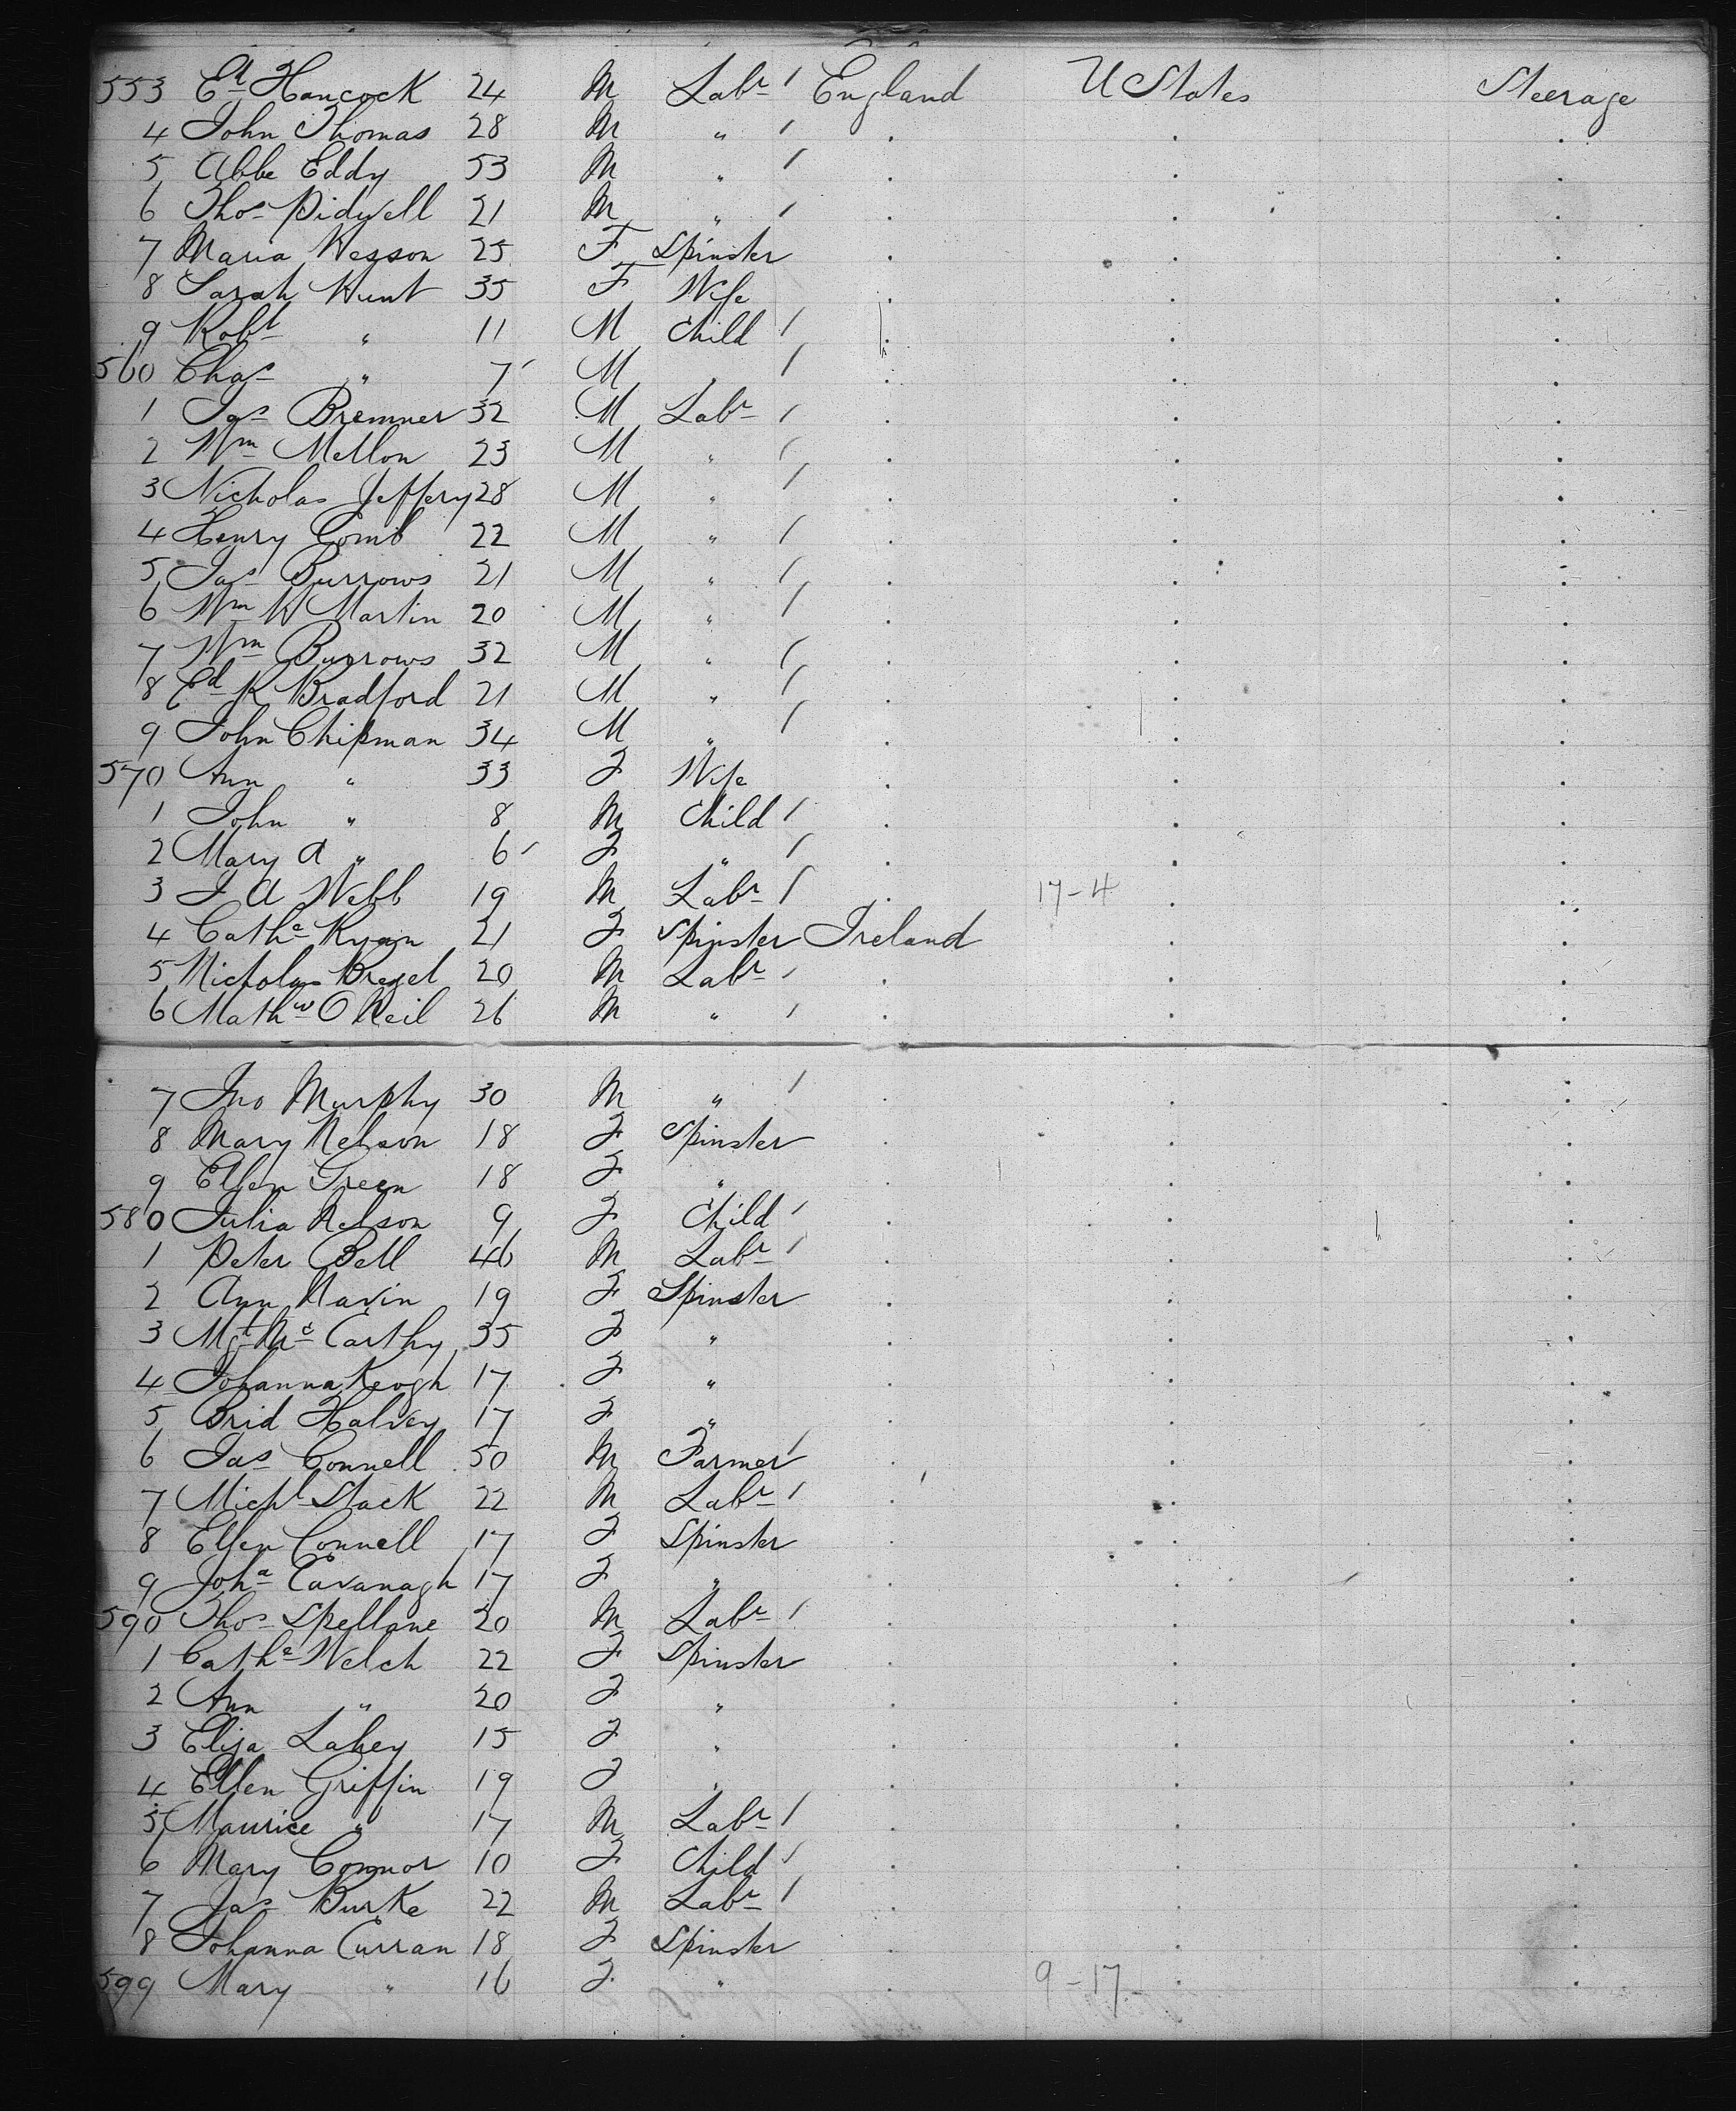 553 Ed Hancock 24 M Labr England U States Steerage
4 John Thomas 28 M " . . .
5 Abbe Eddy 53 M " . . .
6 Thos Pidwell 21 M " . . .
7 Maria Wesson 25 F Spinster . . .
8 Sarah Hunt 35 F Wife . . .
9 Robt " 11 M Child . . .
560 Chas " 7 M " . . .
1 Jas Bremner 32 M Labr . . .
2 Wm Mellon 23 M " . . .
3 Nicholas Jeffery 28 M " . . .
4 Henry Comb 22 M " . . .
5 Jas Burrows 21 M " . . .
6 Wm H Martin 20 M " . . .
7 Wm Burrows 32 M " . . .
8 Ed K Bradford 21 M " . . .
9 John Chipman 34 M " . . .
570 Ann " 33 F Wife . . .
1 John " 8 M Child . . .
2 Mary A " 6 F " . . .
3 J A Webb 19 M Labr . 17-4 . .
4 Cathe Ryan 21 F Spinster Ireland . .
5 Nicholas 20 M Labr . . .
6 Mathw O Neil 26 M " . . .
7 Jno Murphy 30 M " . . .
8 Mary Nelson 18 F Spinster . . .
9 Ellen Green 18 F " . . .
580 Julia Nelson 9 F Child . . .
1 Peter Bell 46 M Labr . . .
2 Ann Navin 19 F Spinster . . .
3 Mgt Mc Carthy 35 F " . . .
4 Johanna Keogh 17 F " . . .
5 Brid Halvey 17 F " . . .
6 Jas Connell 50 M Farmer . . .
7 Michl Stack 22 M Labr . . .
8 Ellen Connell 17 F Spinster . . .
9 Joha Cavanagh 17 F " . . .
590 Thos Spellane 20 M Labr . . .
1 Cathe Welch 22 F Spinster . . .
2 Ann " 20 F " . . .
3 Eliza Lahey 15 F " . . .
4 Ellen Griffin 19 F " . . .
5 Maurice " 17 M Labr . . .
6 Mary Connor 10 F Child . . .
7 Jas Burke 22 M Labr . . .
8 Johanna Curran 18 F Spinster . . .
599 Mary " 16 F " . 9-17- . .